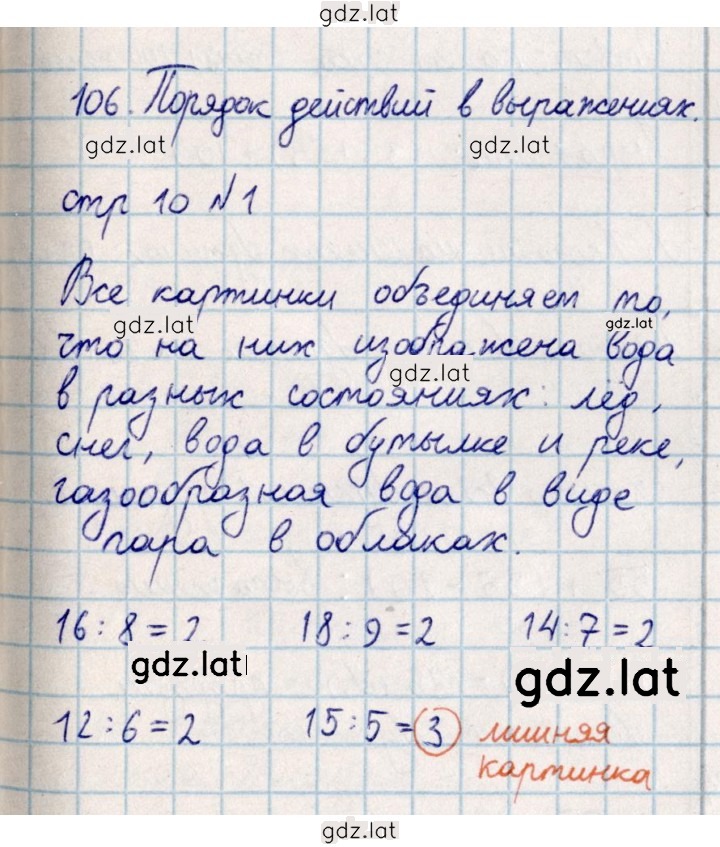 gdz.lat
106. Порядок действий в выражениях.
gdz.lat gdz.lat
стр 10 №1
Все картинки объединяет то,
gdz.lat gdz.lat
что на них изображена вода
gdz.lat
в разных состояниях: лёд,
снег, вода в бутылке и реке,
газообразная вода в виде
пара в облаках.
16 : 8 = 2 18 : 9 = 2 14 : 7 = 2
gdz.lat gdz.lat
12 : 6 = 2 15 : 5 = 3 лишняя
картинка
gdz.lat